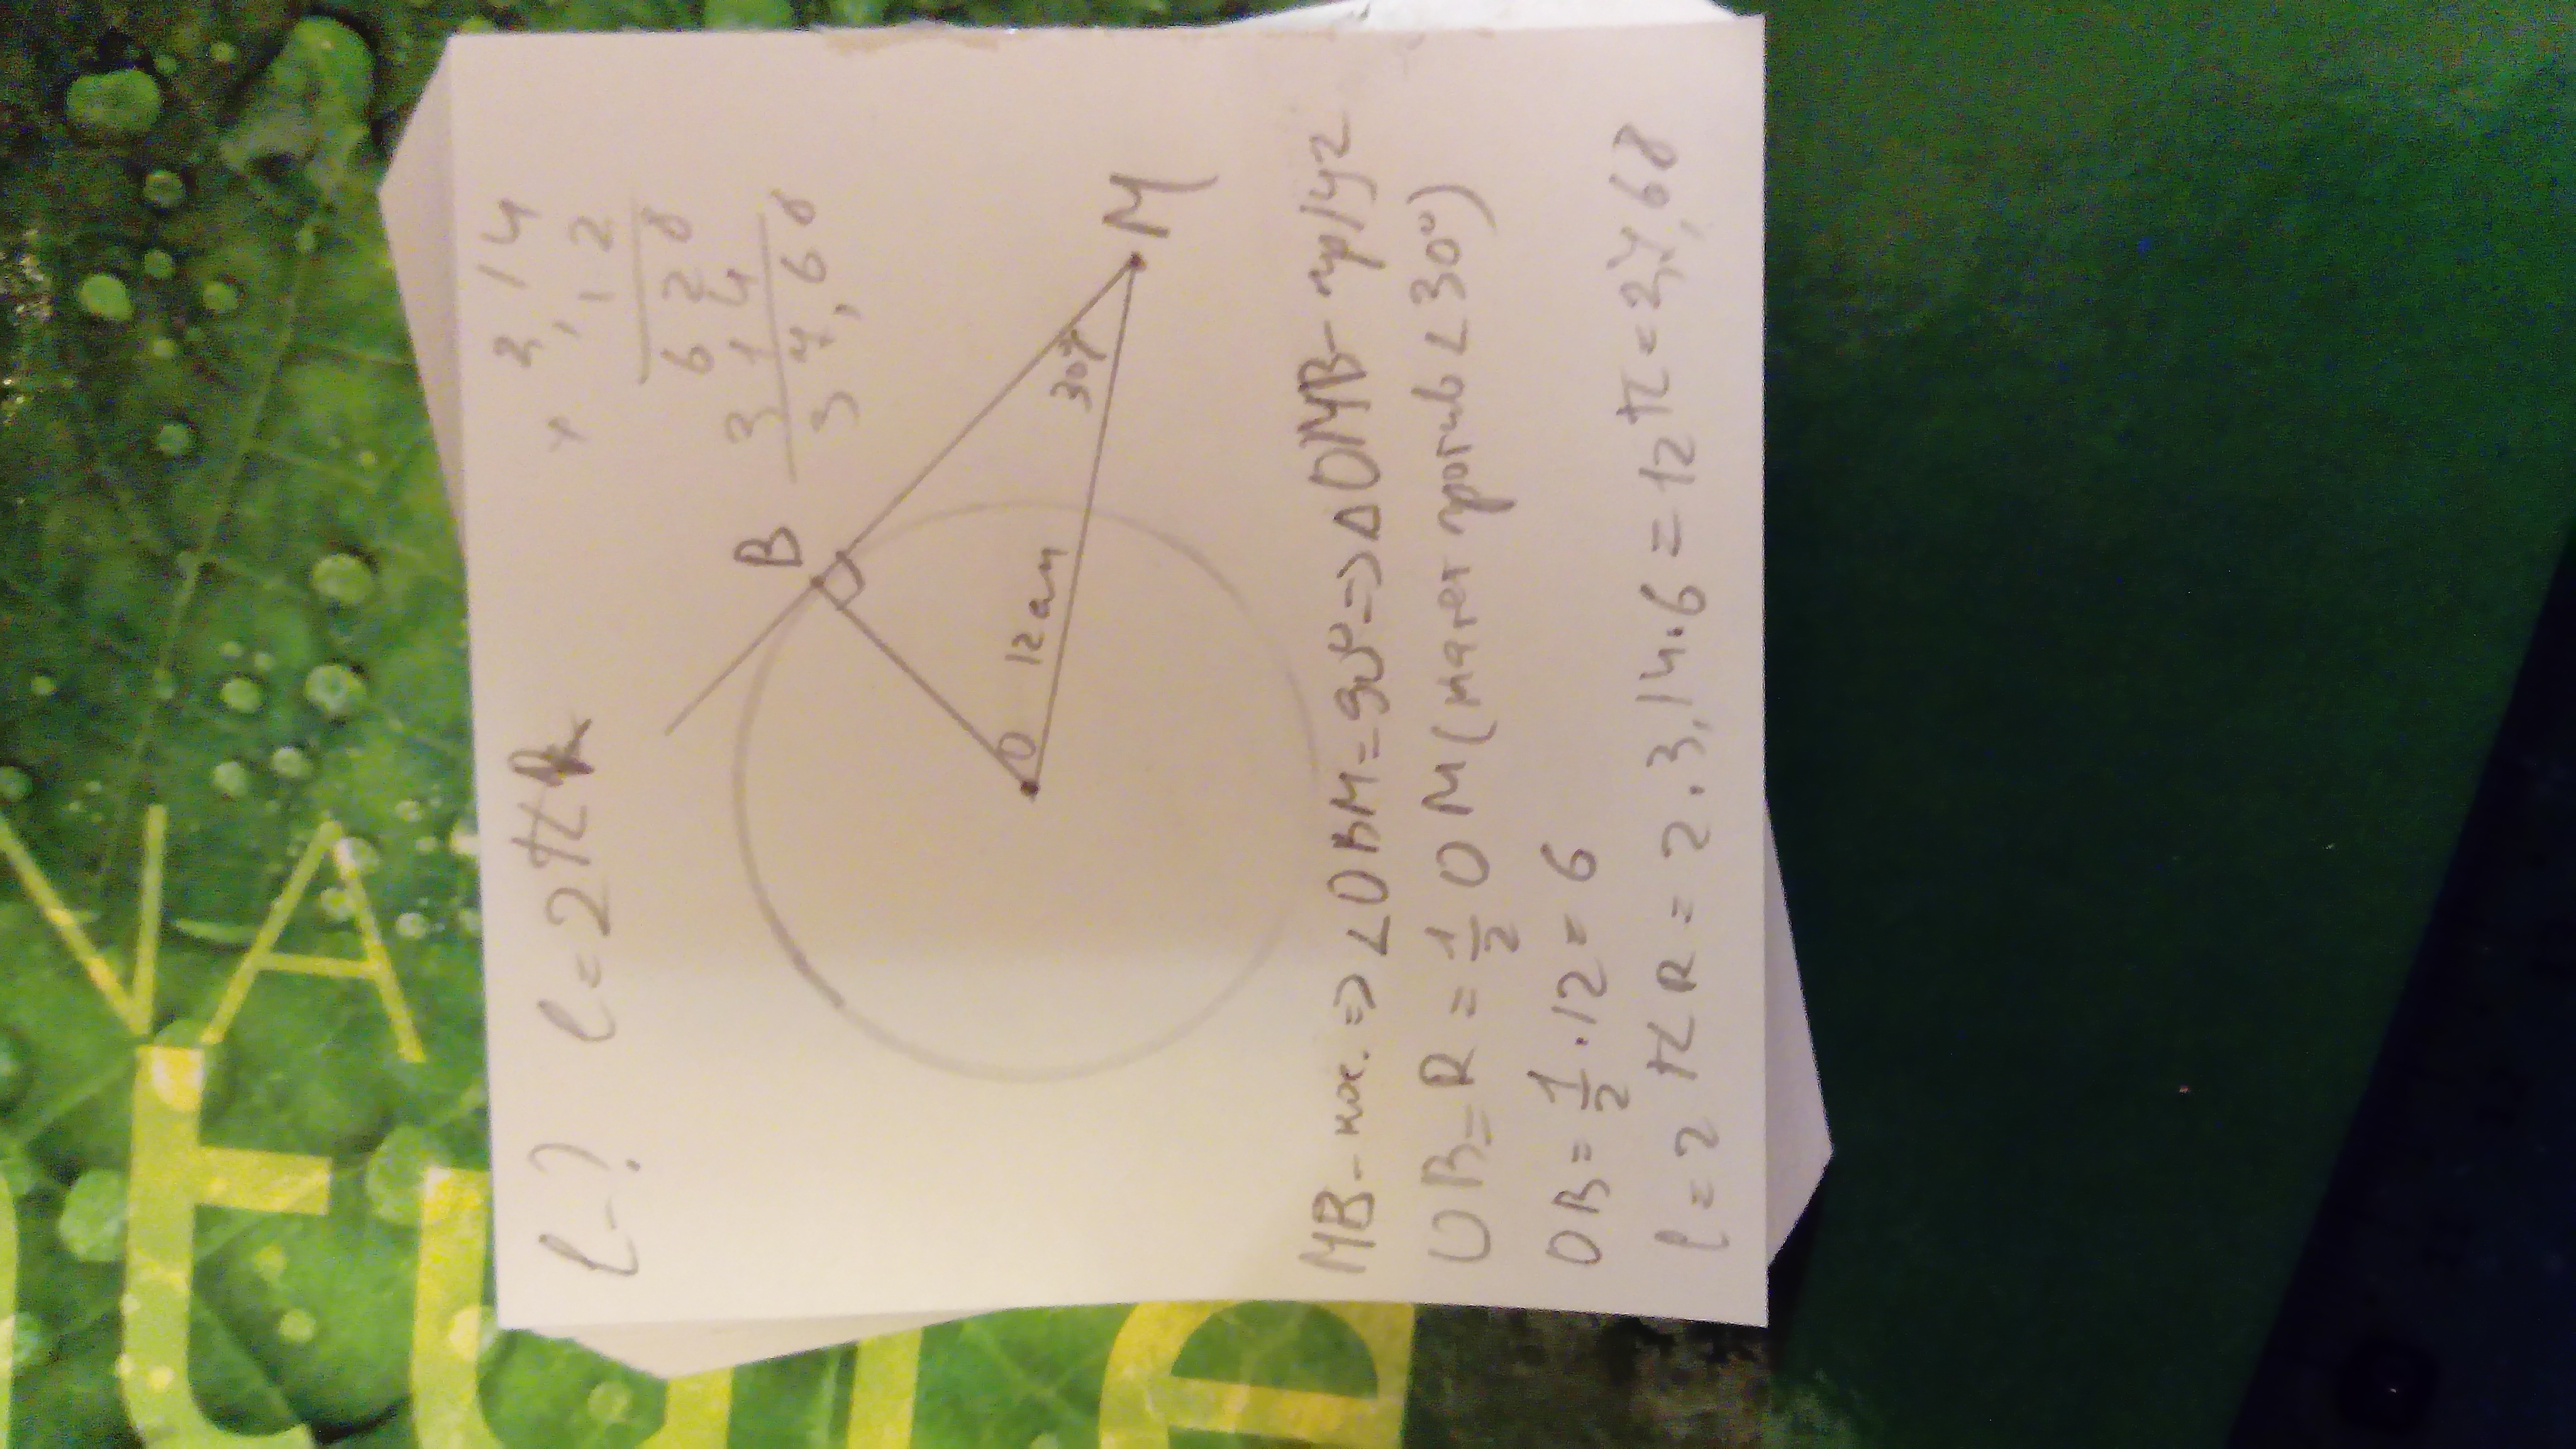 l-? l = 2πR
3,14
× 12
628
314
37,68
B
O
12 см
30°
M
MB - кас. => ∠OBM = 90° => ΔOMB - пр/уг
OB = R = 1/2 OM (катет против ∠30°)
OB = 1/2 · 12 = 6
l = 2πR = 2 · 3,14 · 6 = 12π = 37,68